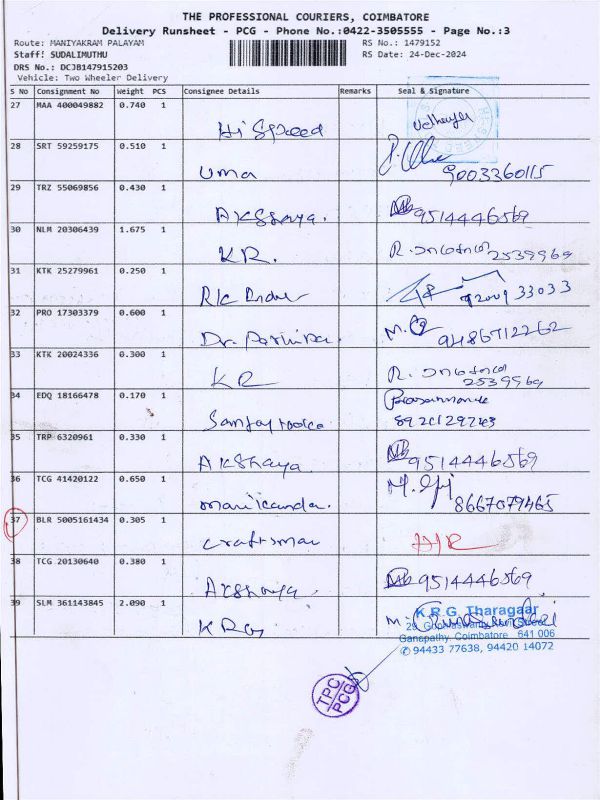 THE PROFESSIONAL COURIERS, COIMBATORE
Delivery Runsheet - PCG - Phone No.:0422-3505555 - Page No.:3
Route: MANIYAKRAM PALAYAM RS No.: 1479152
Staff: SUDALIMUTHU RS Date: 24-Dec-2024
DRS No.: DCJB147915203
Vehicle: Two Wheeler Delivery
S No Consignment No Weight PCS Consignee Details Remarks Seal & Signature
27 MAA 400049882 0.740 1
Hi Speed
28 SRT 59259175 0.510 1
Uma 9003360115
29 TRZ 55069856 0.430 1
Akshaya. 9514446569
30 NLM 20306439 1.675 1
KR. 2539969
31 KTK 25279961 0.250 1
92009 33033
32 PRO 17303379 0.600 1
Dr. 9486712262
33 KTK 20024336 0.300 1
KR 2539969
34 EDQ 18166478 0.170 1
35 TRP 6320961 0.330 1
Akshaya 9514446569
36 TCG 41420122 0.650 1
8667079465
37 BLR 5005161434 0.305 1
Craftsman
38 TCG 20130640 0.380 1
Akshaya 9514446569
39 SLM 361143845 2.090 1
KRG
K.R.G. Tharagaar
Ganapathy, Coimbatore 641 006
✆ 94433 77638, 94420 14072
TPC
PCG